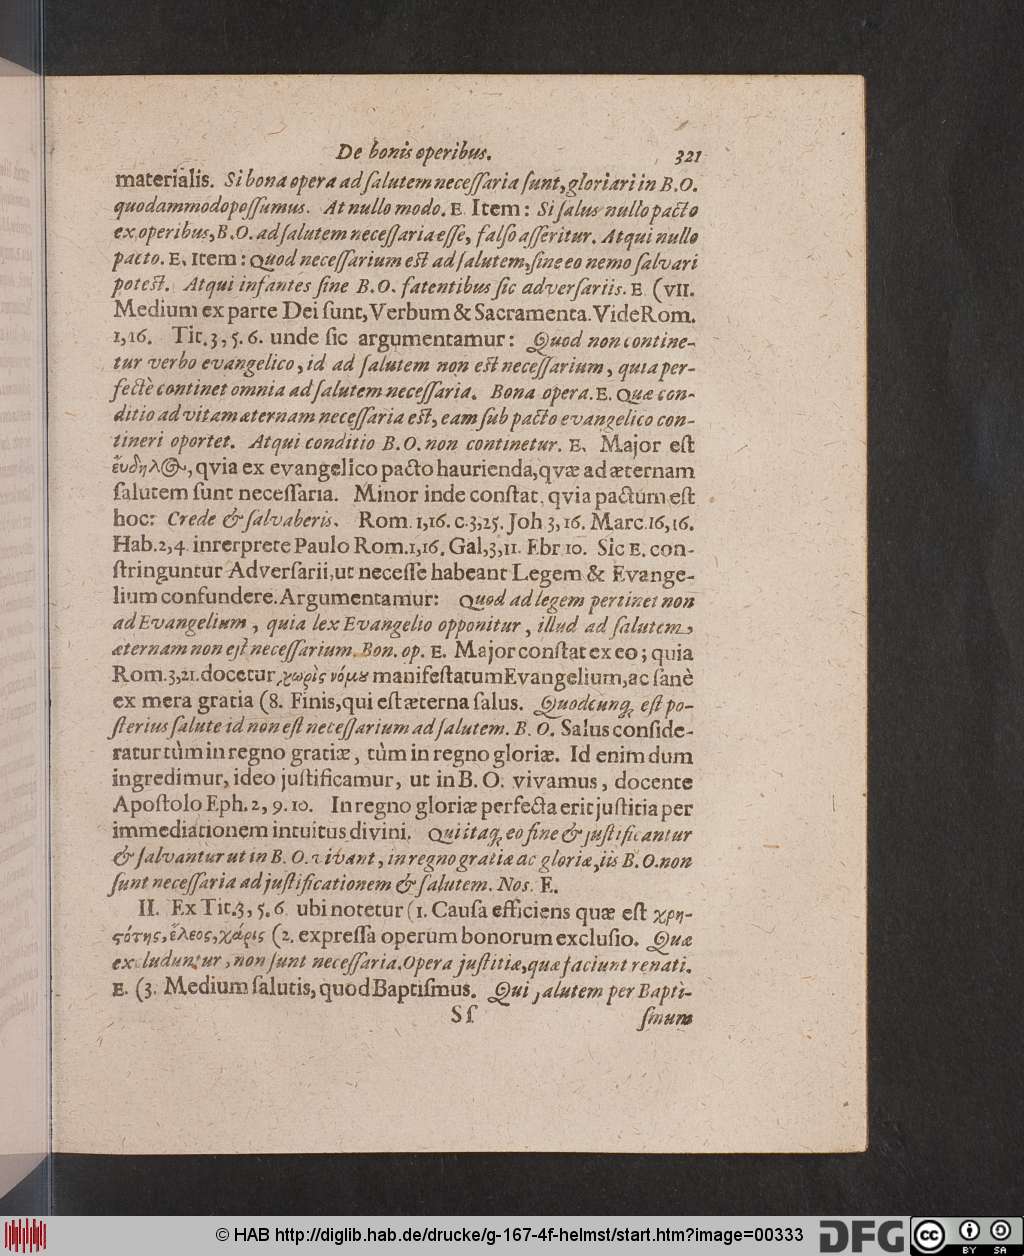 De bonis operibus. 321
materialis. Si bona opera ad ſalutem neceſſaria ſunt, gloriari in B.O.
quodammodo poſſumus. At nullo modo. E. Item: Si ſalus nullo pacto
ex operibus, B.O. ad ſalutem neceſſaria eſſe, falſo aſſeritur. Atqui nullo
pacto. E. Item: Quod neceſſarium eſt ad ſalutem, ſine eo nemo ſalvari
poteſt. Atqui infantes ſine B.O. fatentibus ſic adverſariis. E. (VII.
Medium ex parte Dei ſunt, Verbum & Sacramenta. Vide Rom.
1,16. Tit. 3, 5. 6. unde ſic argumentamur: Quod non contine-
tur verbo evangelico, id ad ſalutem non eſt neceſſarium, quia per-
fectè continet omnia ad ſalutem neceſſaria. Bona opera. E. Quæ con-
ditio ad vitam æternam neceſſaria eſt, eam ſub pacto evangelico con-
tineri oportet. Atqui conditio B.O. non continetur. E. Major eſt
εὔδηλος, qvia ex evangelico pacto haurienda, qvæ ad æternam
ſalutem ſunt neceſſaria. Minor inde conſtat, qvia pactum eſt
hoc: Crede & ſalvaberis. Rom. 1,16. c.3,25. Joh 3, 16. Marc. 16, 16.
Hab. 2, 4. inrerprete Paulo Rom. 1,16. Gal, 3, 11. Ebr 10. Sic E. con-
ſtringuntur Adverſarii, ut neceſſe habeant Legem & Evange-
lium confundere. Argumentamur: Quod ad legem pertinet non
ad Evangelium, quia lex Evangelio opponitur, illud ad ſalutem
æternam non eſt neceſſarium. Bon. op. E. Major conſtat ex eo; quia
Rom. 3, 21. docetur χωρὶς νόμȣ manifeſtatum Evangelium, ac ſanè
ex mera gratia (8. Finis, qui eſt æterna ſalus. Quodcunq; eſt po-
ſterius ſalute id non eſt neceſſarium ad ſalutem. B. O. Salus conſide-
ratur tùm in regno gratiæ, tùm in regno gloriæ. Id enim dum
ingredimur, ideo juſtificamur, ut in B. O. vivamus, docente
Apoſtolo Eph. 2, 9. 10. In regno gloriæ perfecta erit juſtitia per
immediationem intuitus divini. Qui itaq; eo fine & juſtificantur
& ſalvantur ut in B. O. vivant, in regno gratiæ ac gloriæ, iis B. O. non
ſunt neceſſaria ad juſtificationem & ſalutem. Nos. E.
II. Ex Tit. 3, 5. 6 ubi notetur (1. Cauſa efficiens quæ eſt χρη-
ϛότης, ἔλεος, χάρις (2. expreſſa operum bonorum excluſio. Quæ
excluduntur, non ſunt neceſſaria. Opera juſtitiæ, quæ faciunt renati.
E. (3. Medium ſalutis, quod Baptiſmus. Qui ſalutem per Bapti-
Sſ ſmum
© HAB http://diglib.hab.de/drucke/g-167-4f-helmst/start.htm?image=00333 DFG cc BY SA